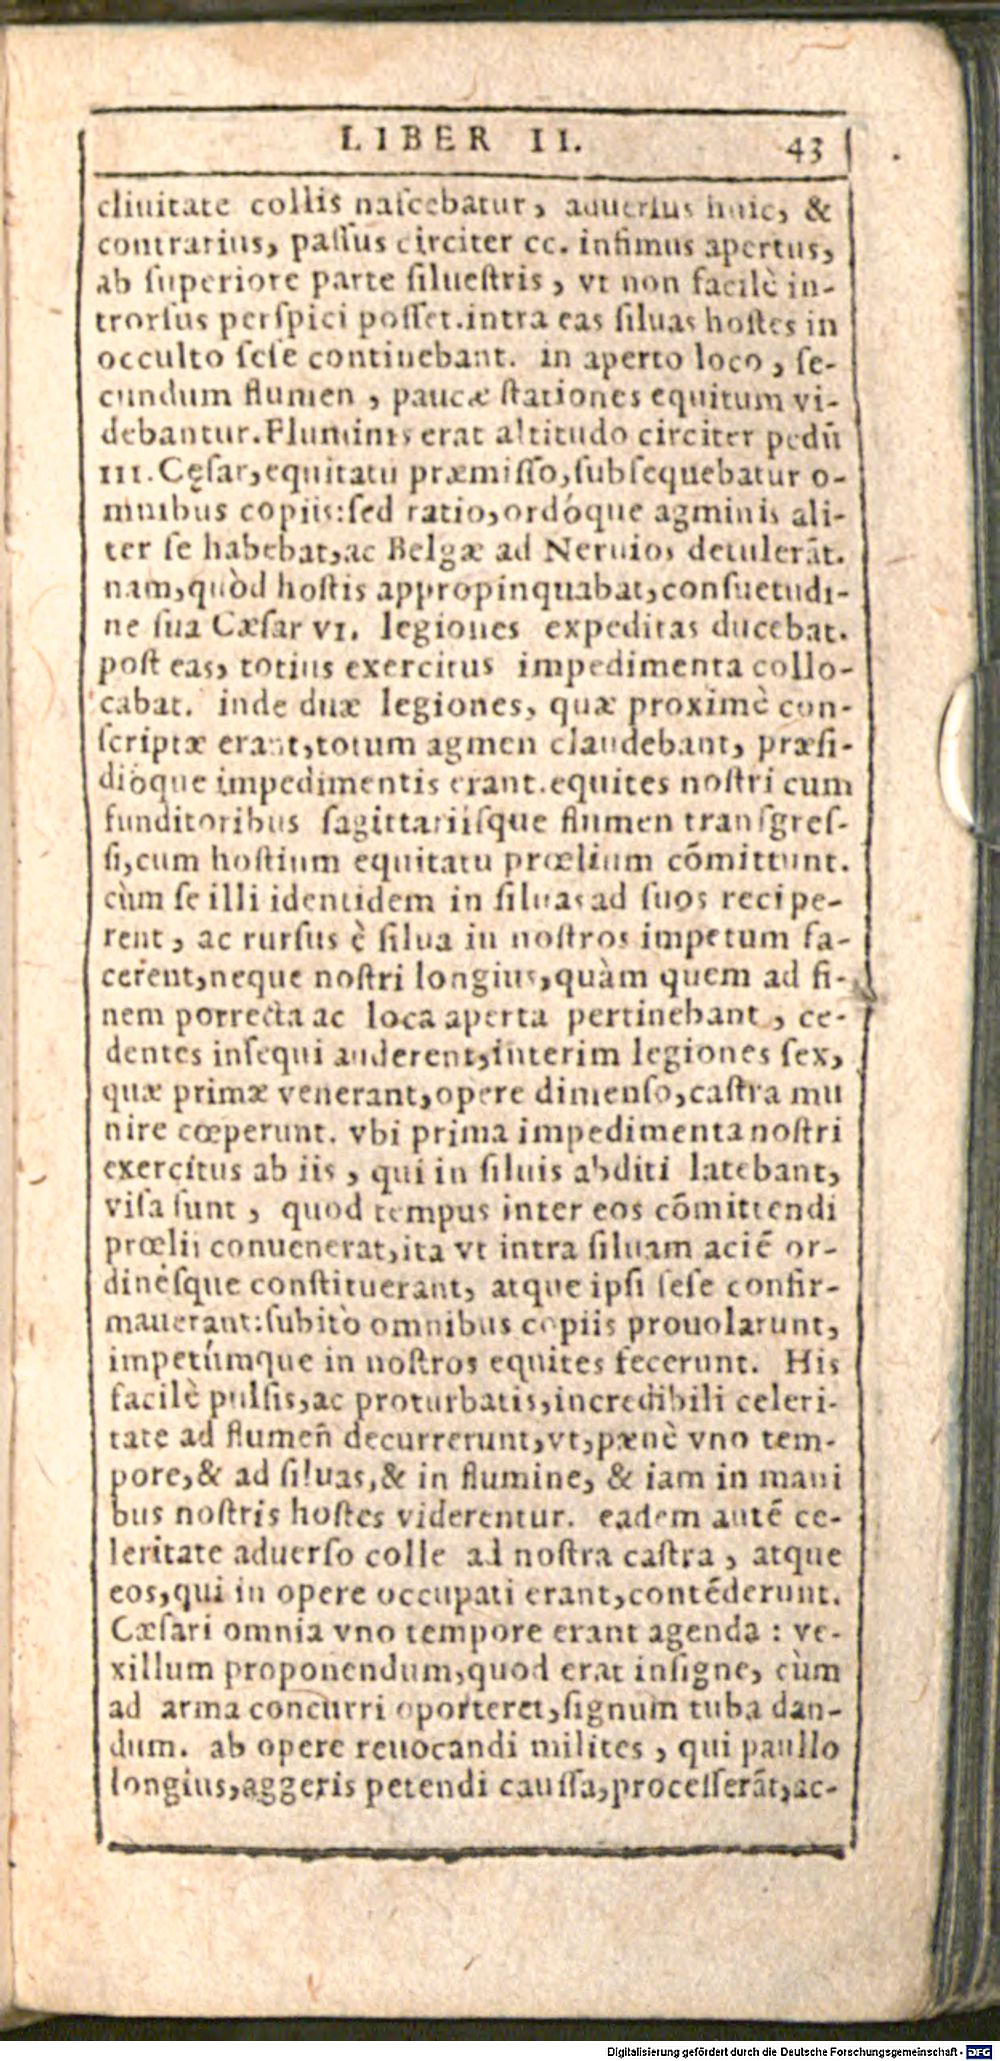 LIBER II. 43
cliuitate collis nascebatur, aduersus huic, &
contrarius, passus circiter cc. infimus apertus,
ab superiore parte siluestris, vt non facilè in-
trorsus perspici posset. intra eas siluas hostes in
occulto sese continebant. in aperto loco, se-
cundum flumen, paucæ stationes equitum vi-
debantur. Fluminis erat altitudo circiter pedū
III. Cęsar, equitatu præmisso, subsequebatur o-
mnibus copiis: sed ratio, ordóque agminis ali-
ter se habebat, ac Belgæ ad Neruios detulerāt.
nam, quòd hostis appropinquabat, consuetudi-
ne sua Cæsar VI. legiones expeditas ducebat.
post eas, totius exercitus impedimenta collo-
cabat. inde duæ legiones, quæ proximè con-
scriptæ erant, totum agmen claudebant, præsi-
dióque impedimentis erant. equites nostri cum
funditoribus sagittariisque flumen transgres-
si, cum hostium equitatu prœlium cōmittunt.
cùm se illi identidem in siluas ad suos recipe-
rent, ac rursus è silua in nostros impetum fa-
cerent, neque nostri longius, quàm quem ad fi-
nem porrecta ac loca aperta pertinebant, ce-
dentes insequi auderent, interim legiones sex,
quæ primæ venerant, opere dimenso, castra mu
nire cœperunt. vbi prima impedimenta nostri
exercitus ab iis, qui in siluis abditi latebant,
visa sunt, quod tempus inter eos cōmittendi
prœlij conuenerat, ita vt intra siluam aciē or-
dinésque constituerant, atque ipsi sese confir-
mauerant: subitò omnibus copiis prouolarunt,
impetúmque in nostros equites fecerunt. His
facilè pulsis, ac proturbatis, incredibili celeri-
tate ad flumen̄ decurrerunt, vt, pænè vno tem-
pore, & ad siluas, & in flumine, & iam in mani
bus nostris hostes viderentur. eadem autē ce-
leritate aduerso colle ad nostra castra, atque
eos, qui in opere occupati erant, contēderunt.
Cæsari omnia vno tempore erant agenda: ve-
xillum proponendum, quod erat insigne, cùm
ad arma concurri oporteret, signum tuba dan-
dum. ab opere reuocandi milites, qui paullo
longius, aggeris petendi caussa, processerāt, ac-
Digitalisierung gefördert durch die Deutsche Forschungsgemeinschaft - DFG